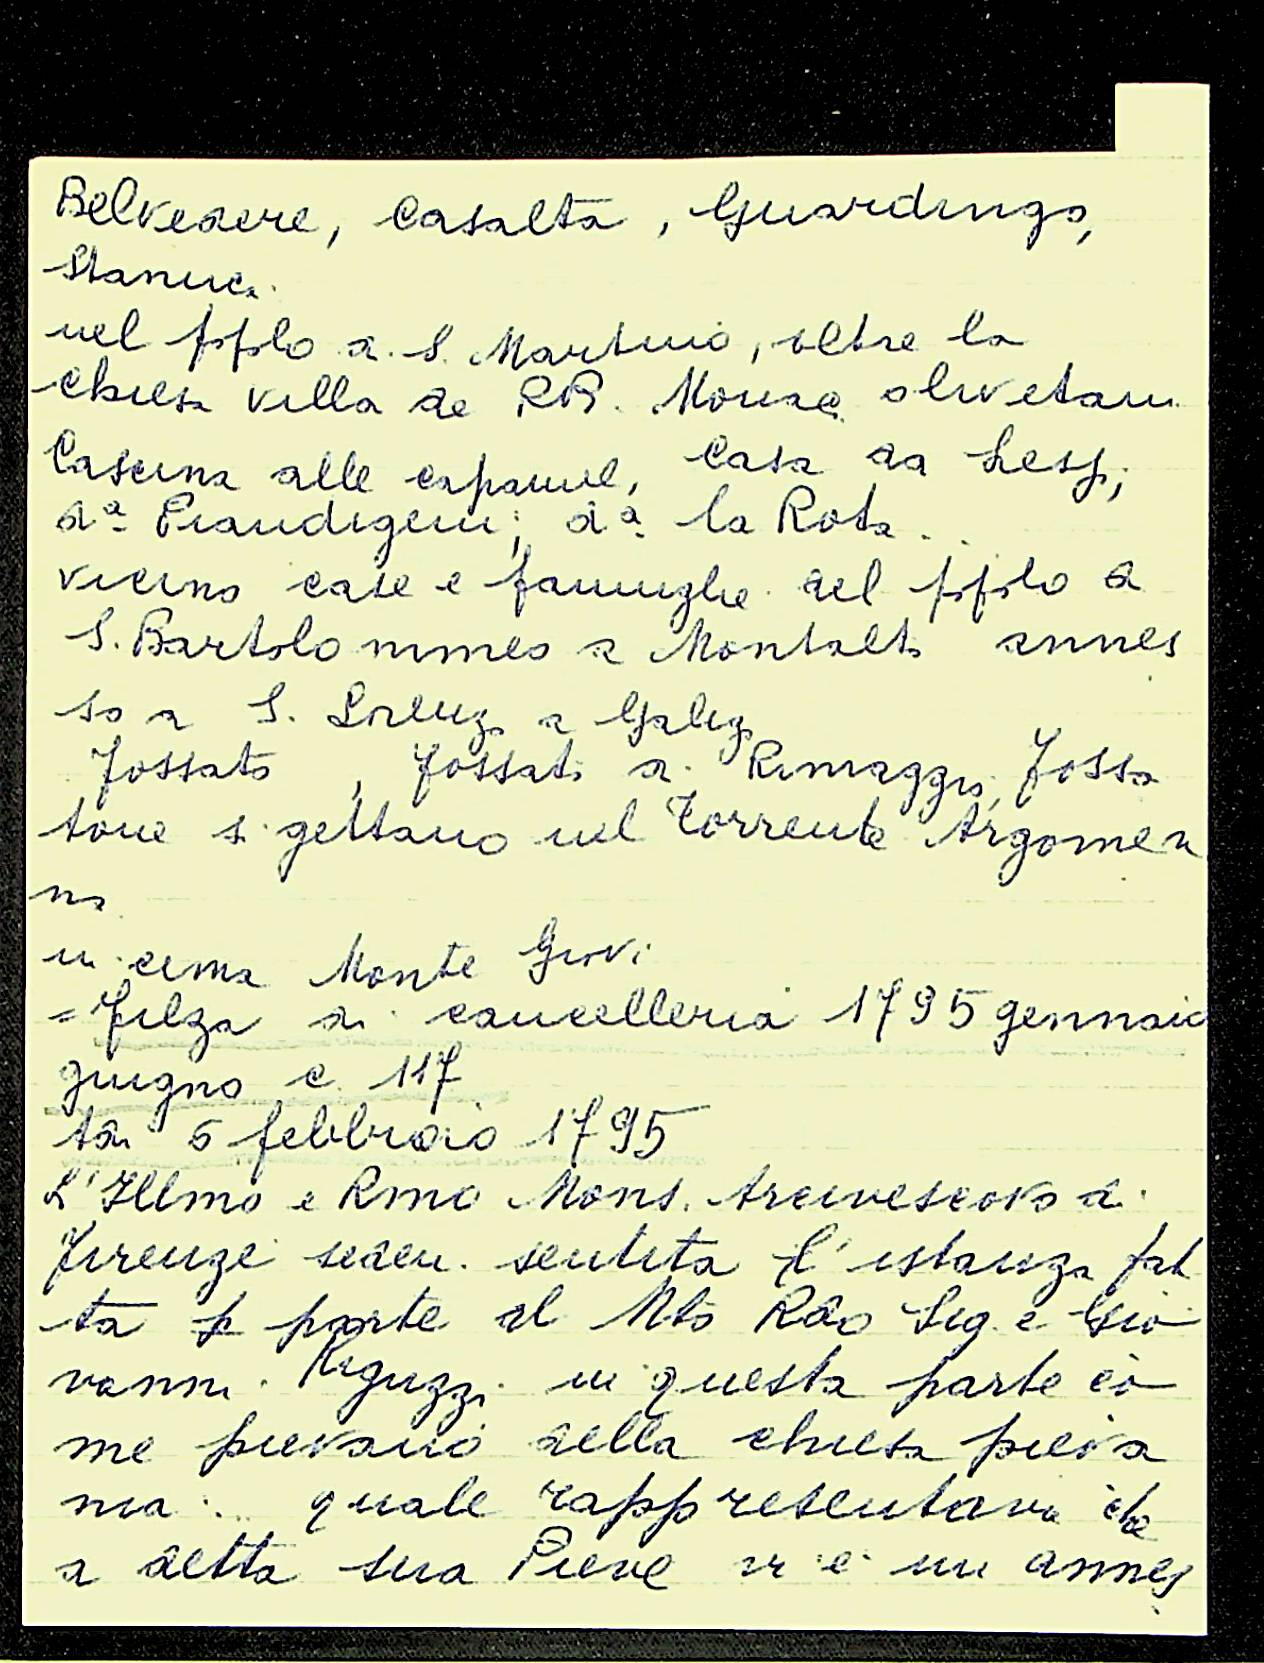 Belvedere, Casalta, Guardingo,
Stanuca.
nel poplo d. S. Martino, oltre la
chiesa villa de RR. Monaci olivetani
Cascina alle capanne, Casa da Lespi,
da Piandigeni; da la Rota..
vicino case e famiglie del poplo d
S. Bartolommeo a Montalto annes
so a S. Lorenzo a Galiga
Fossato, Fossati di Rimaggio, Fossa
tone si gettano nel Torrente Argomen
na
in cima Monte Giovi
= Filza di cancelleria 1795 gennaio
giugno c. 117
6 febbraio 1795
L'Illmo e Rmo Mons. Arcivescovo di
Firenze seden. sentita l'istanza fat
ta p parte del Mto Rdo Sig. e Gio
vanni Riguzzi in questa parte co
me pievano della chiesa pieva
nia... quale rappresentava che
a detta sua Pieve vi è un annes